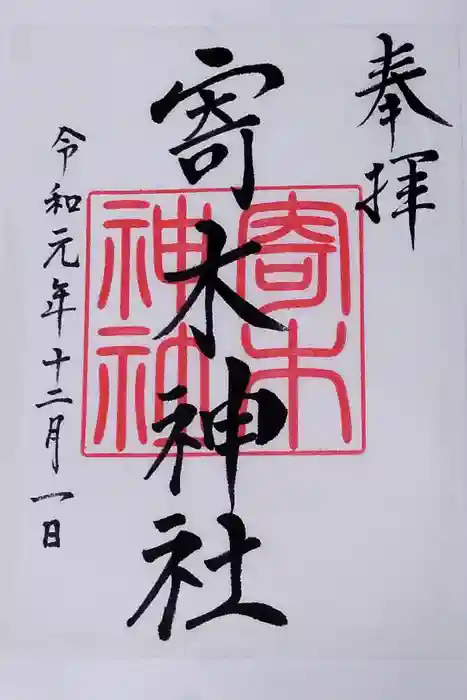 奉拝
寄木神社
寄木神社
令和元年十二月一日